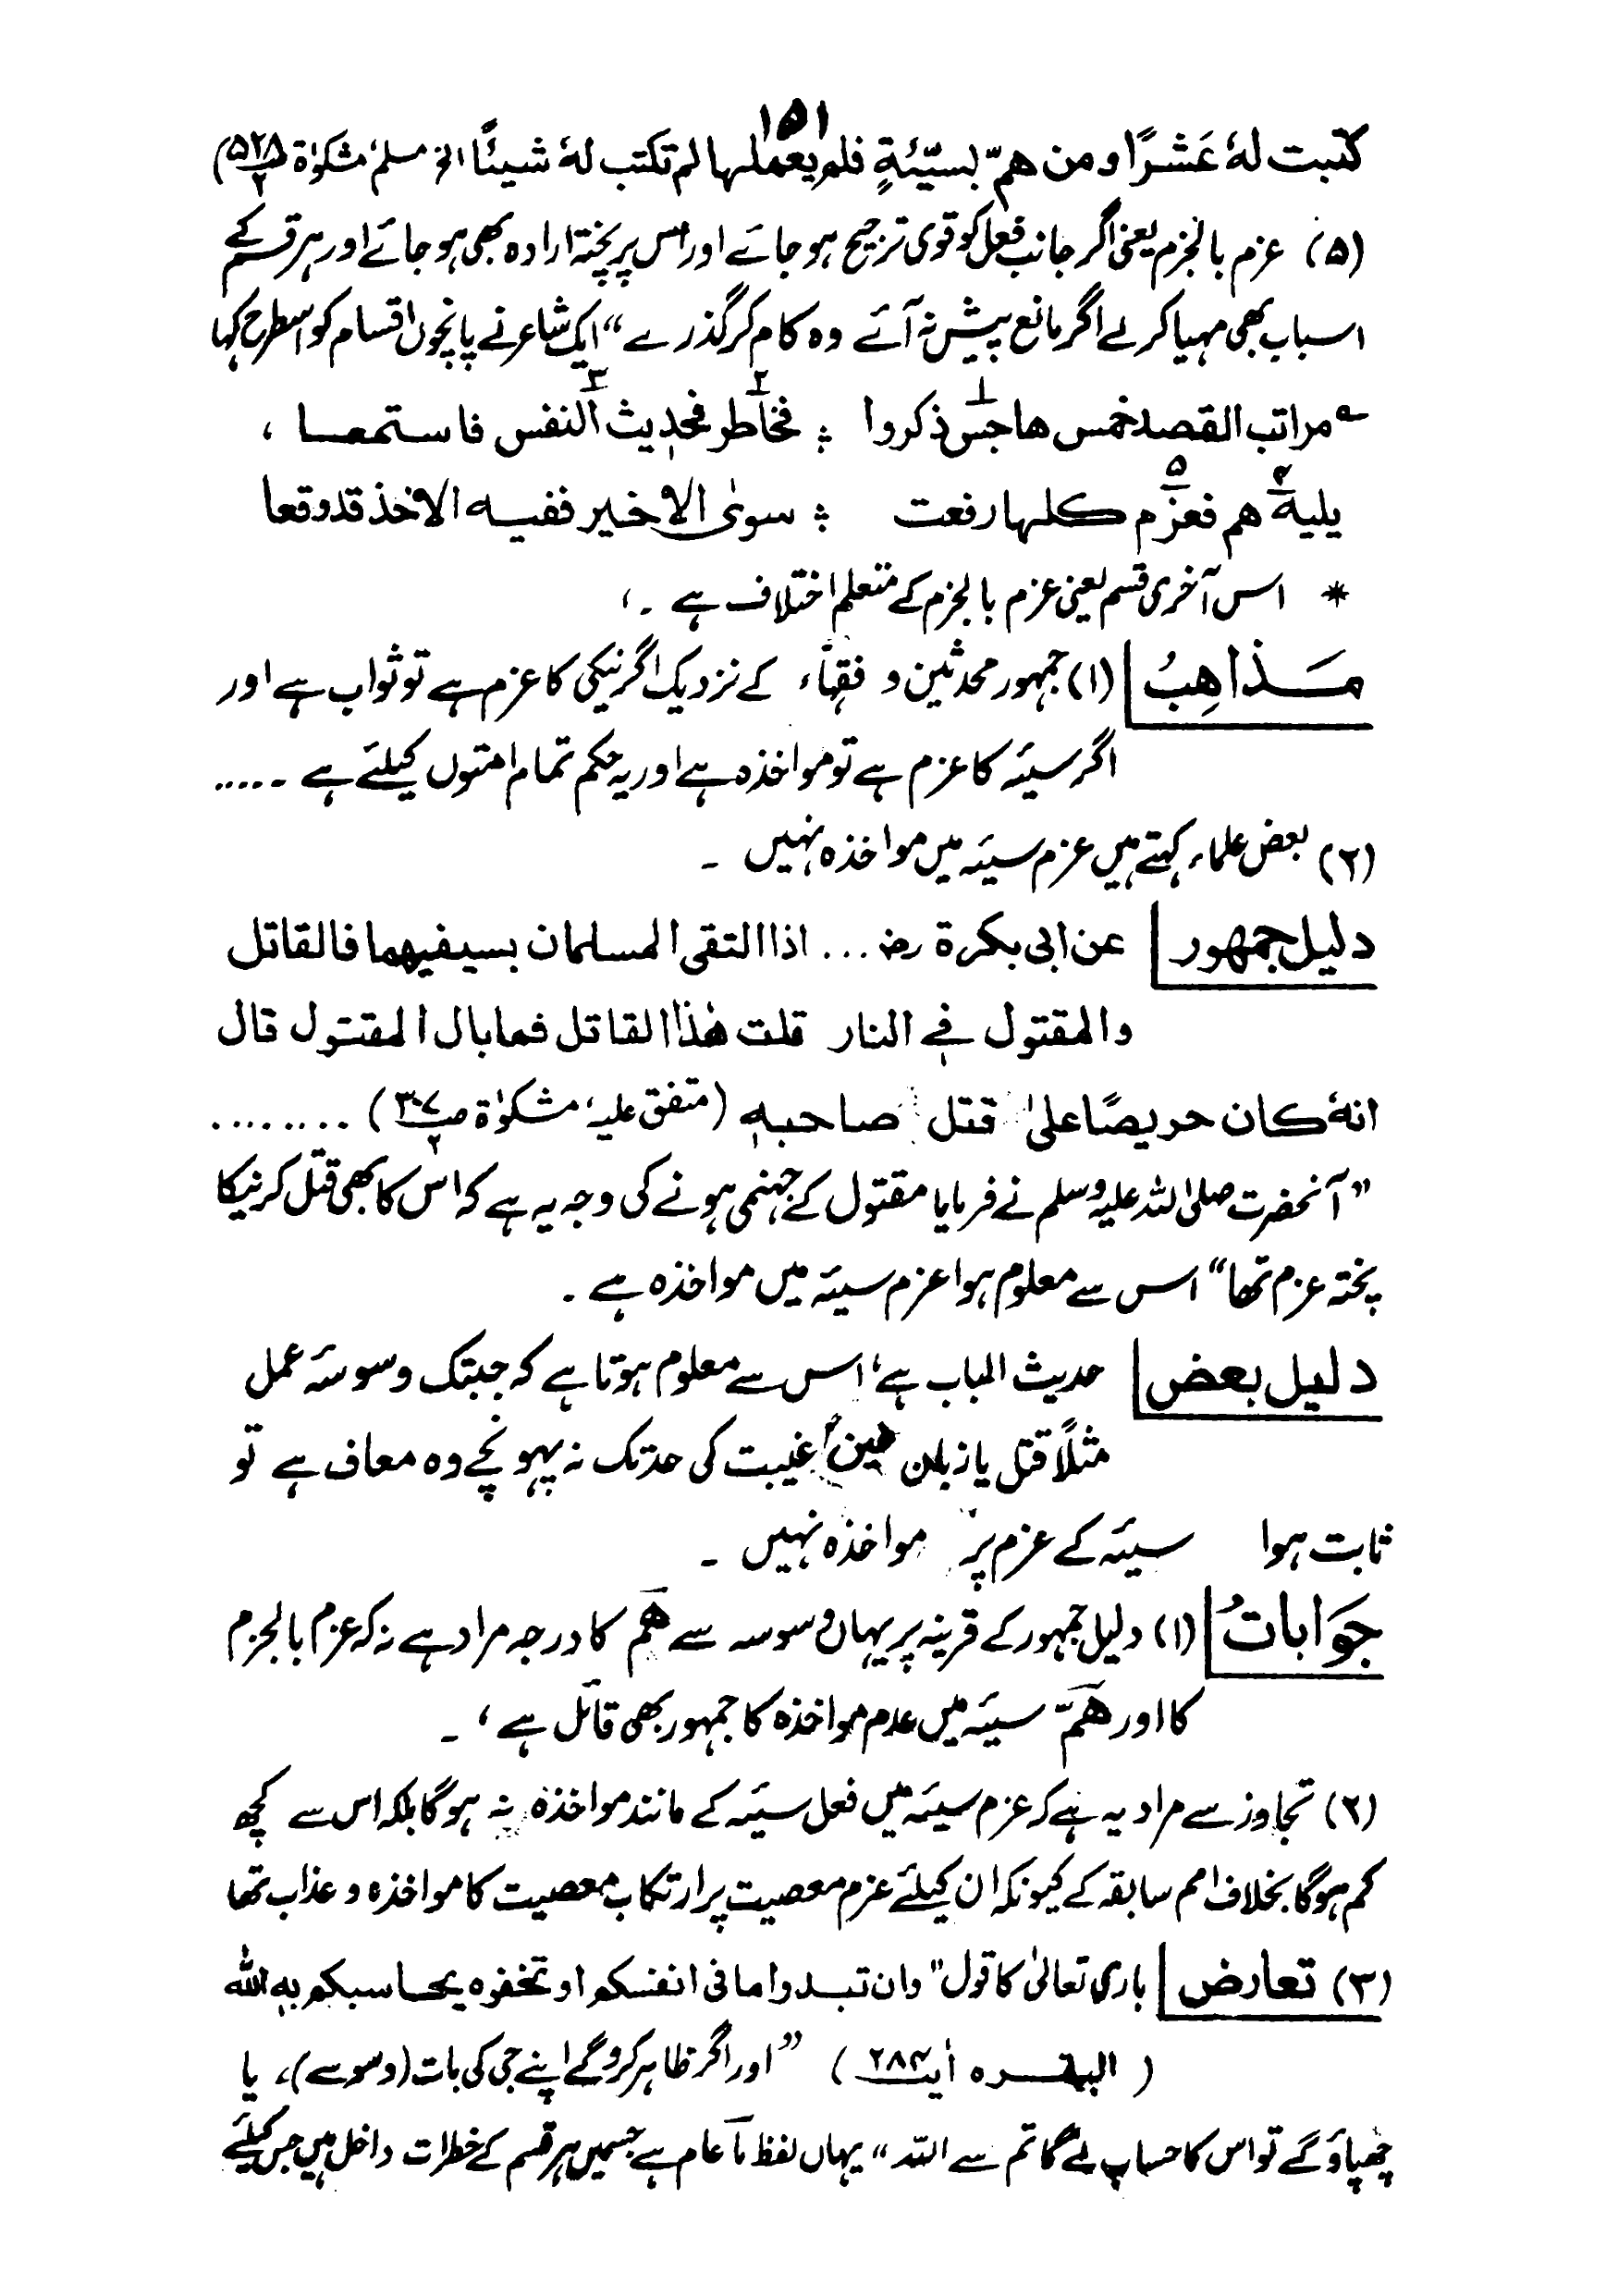 ۱۵۱
کتبت لهٗ عَشرًا ومن همّ بسیّئةٍ فلم یعملها لم تکتب لهٗ شیئًا الخ مسلم، مشکوٰة ۵۲۸/۲)
(۵) عزم بالجزم یعنی اگر جانب فعل کو قوی ترجیح ہو جائے اور اس پر پختہ ارادہ بھی ہو جائے اور ہر قسم کے
اسباب بھی مہیا کر لے اگر مانع پیش نہ آئے وہ کام کر گذرے“ ایک شاعر نے پانچوں اقسام کو اسطرح کہا
؎ مراتب القصد خمس هاجس۱ ذکروا ؛ فخاطر۲ فحدیث النفس۳ فاستمعا ،
یلیه هم۴ فعزم۵ کلها رفعت ؛ سوی الاخیر ففیه الاخذ قد وقعا
* اس آخری قسم یعنی عزم بالجزم کے متعلم اختلاف ہے ۔،
مَذاهِبُ (۱) جمہور محدثین و فقہاء کے نزدیک اگر نیکی کا عزم ہے تو ثواب ہے اور
اگر سیئہ کا عزم ہے تو مواخذہ ہے اور یہ حکم تمام امتوں کیلئے ہے ۔.....
(۲) بعض علماء کہتے ہیں عزم سیئہ میں مواخذہ نہیں ۔
دلیل جمهور عن ابی بکرة رض ... اذا التقی المسلمان بسیفیهما فالقاتل
والمقتول فی النار قلت هٰذا القاتل فما بال المقتول قال
انهٗ کان حریصًا علیٰ قتل صاحبهٖ (متفق علیہ، مشکوٰة ص۳۰۷/۲) ........
”آنحضرت صلی اللہ علیہ وسلم نے فرمایا مقتول کے جہنمی ہونے کی وجہ یہ ہے کہ اس کا بھی قتل کرنیکا
پختہ عزم تھا“ اس سے معلوم ہوا عزم سیئہ میں مواخذہ ہے ۔
دلیل بعض حدیث الباب ہے، اس سے معلوم ہوتا ہے کہ جبتک وسوسۂ عمل
مثلًا قتل یا زبان غیبت کی حد تک نہ پہونچے وہ معاف ہے تو
ثابت ہوا سیئہ کے عزم پر مواخذہ نہیں ۔
جَوَاباتُ (۱) دلیل جمہور کے قرینہ پر یہاں وسوسہ سے هَمّ کا درجہ مراد ہے نہ کہ عزم بالجزم
کا اور هَمّ سیئہ میں عدم مواخذہ کا جمہور بھی قائل ہے ، ۔
(۲) تجاوز سے مراد یہ ہے کہ عزم سیئہ میں فعل سیئہ کے مانند مواخذہ نہ ہوگا بلکہ اس سے کچھ
کم ہوگا بخلاف امم سابقہ کے کیونکہ ان کیلئے عزم معصیت پر ارتکاب معصیت کا مواخذہ و عذاب تھا
(۳) تعارض باری تعالیٰ کا قول ”وان تبدوا ما فی انفسکم او تخفوه یحاسبکم به الله
( البقره أیت ۲۸۴ ) ”اور اگر ظاہر کروگے اپنے جی کی بات (وسوسے)، یا
چھپاؤ گے تو اس کا حساب لے گا تم سے اللّٰہ“ یہاں لفظ مَا عام ہے جسمیں ہر قسم کے خطرات داخل ہیں جس کیلئے